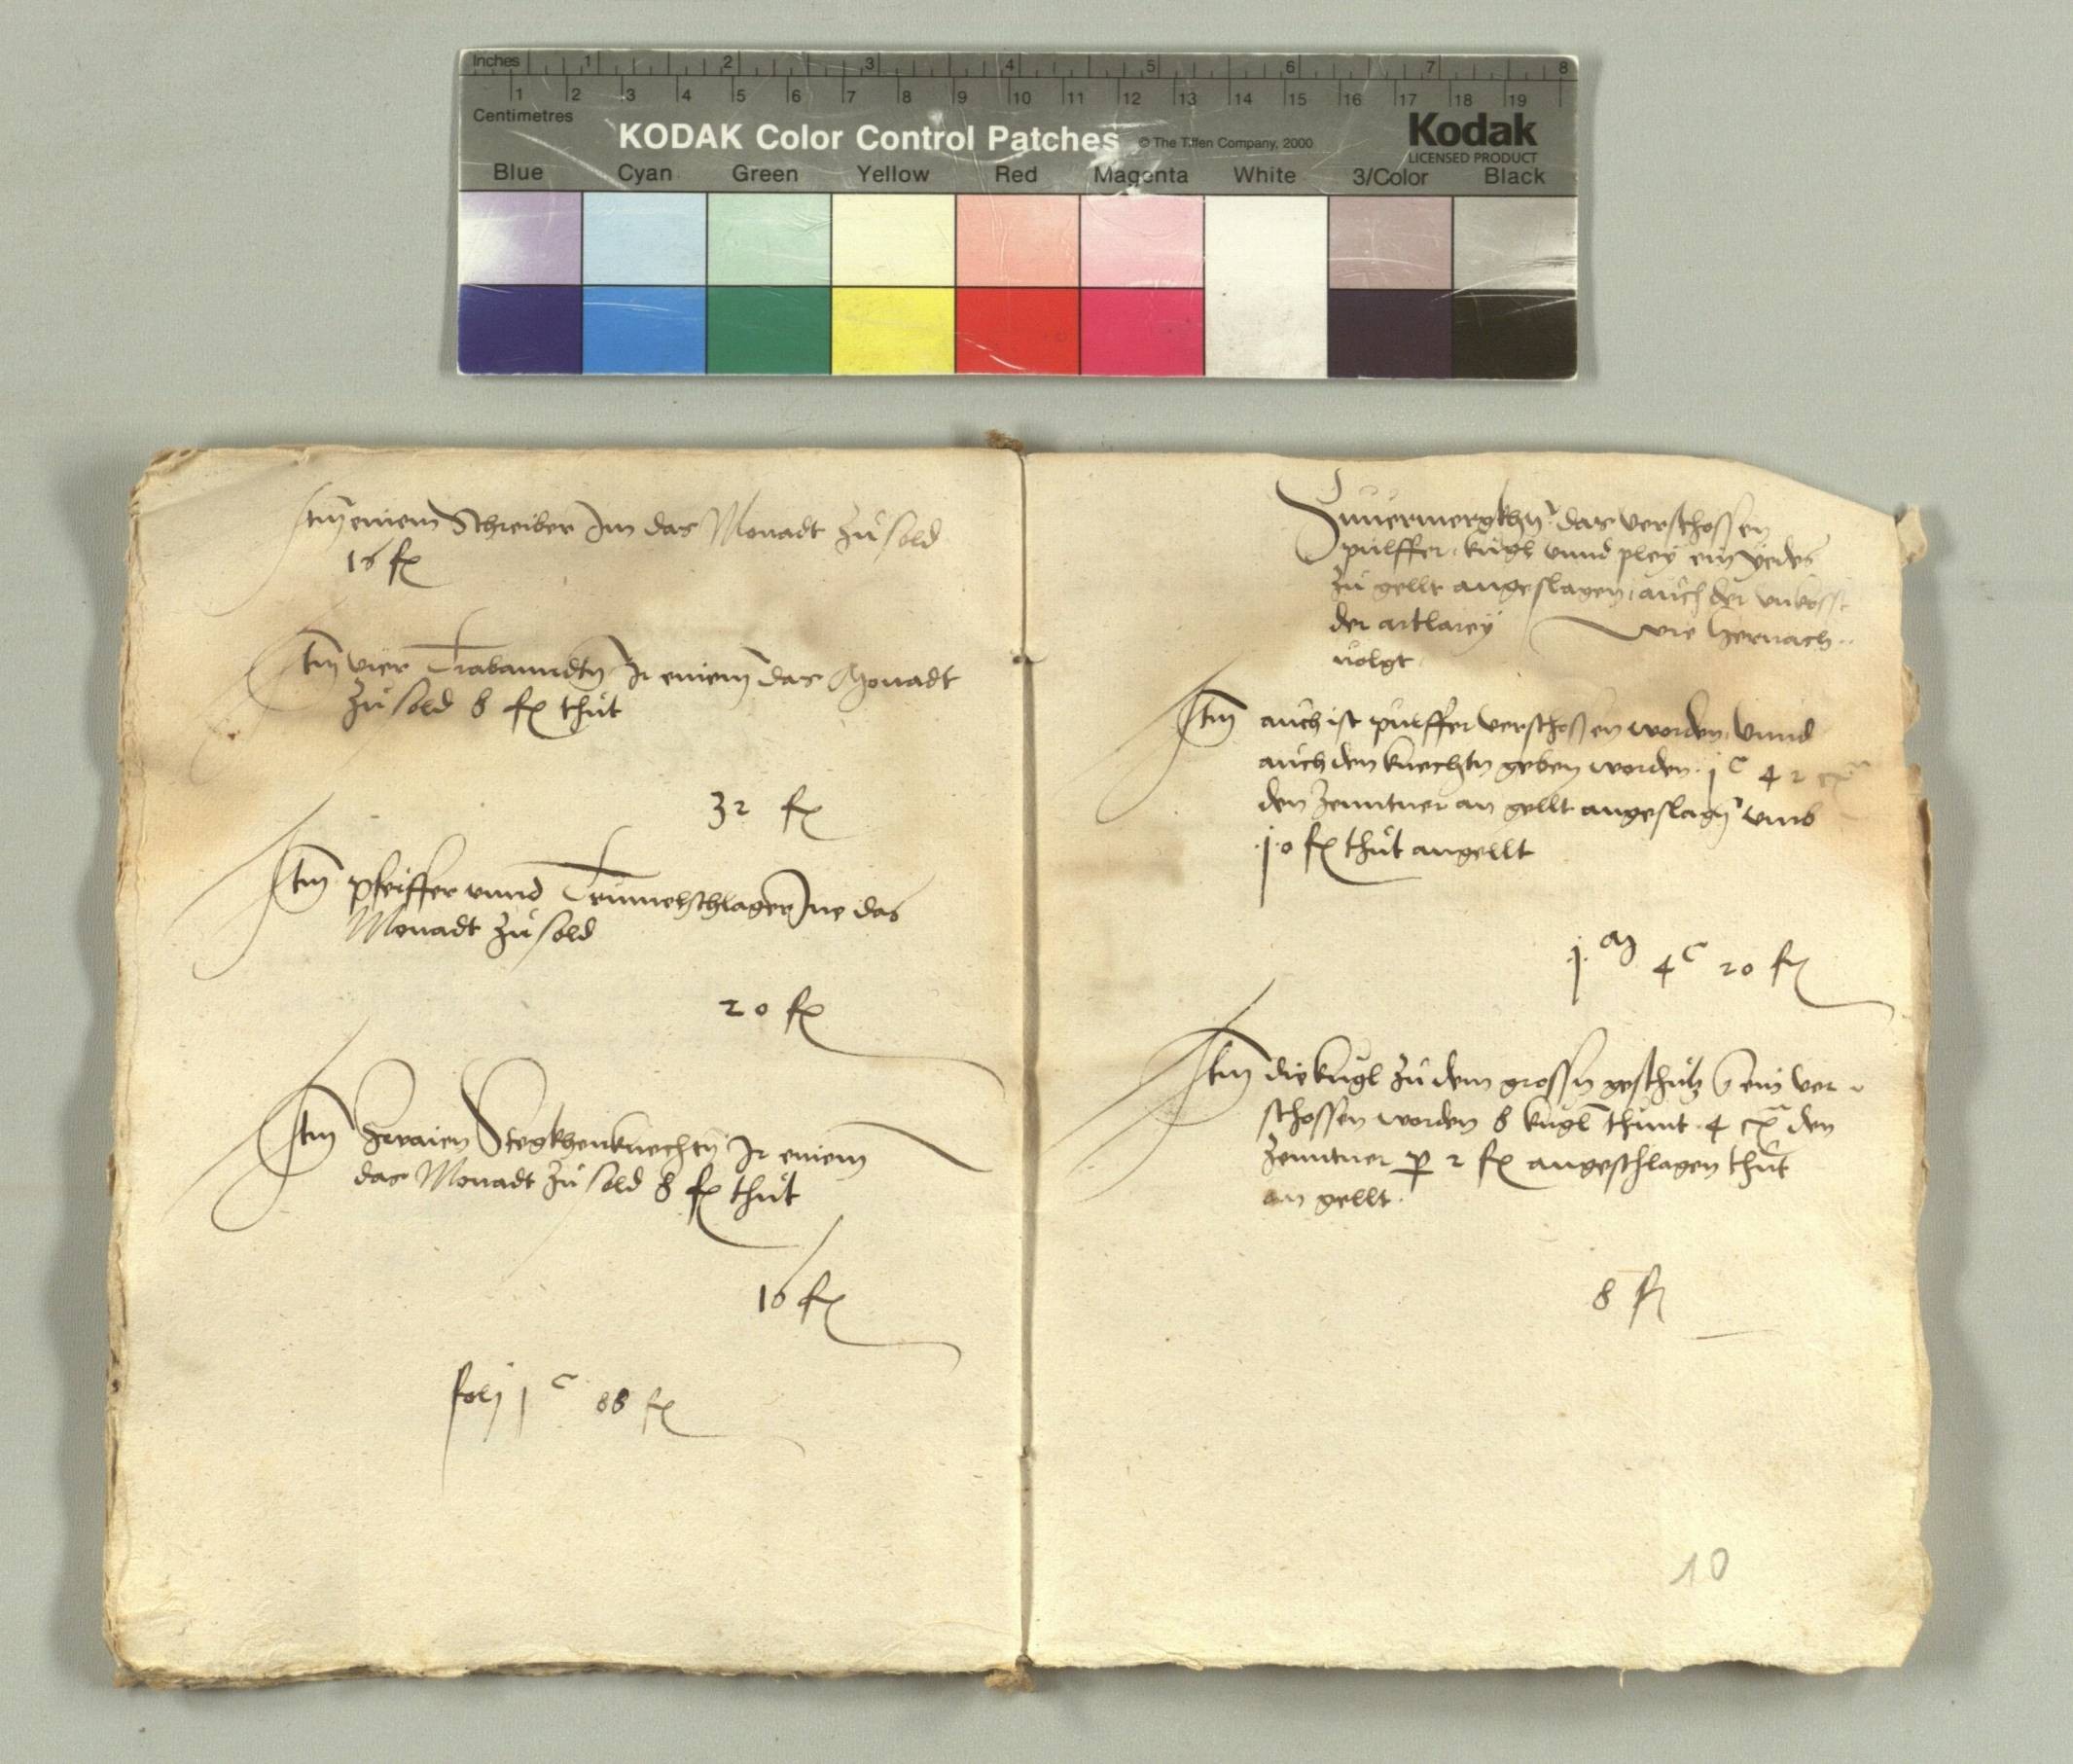 Inches 1 2 3 4 5 6 7 8
1 2 3 4 5 6 7 8 9 10 11 12 13 14 15 16 17 18 19
Centimetres
KODAK Color Control Patches © The Tiffen Company, 2000 Kodak
LICENSED PRODUCT
Blue Cyan Green Yellow Red Magenta White 3/Color Black
Itm einem Schreiber Im das Monadt zu sold
16 fl
Itm vier Trabanndtn Ir einem das Monadt
zu sold 8 fl thut
32 fl
Itm pfeiffer vnnd Trumelschlager Ine das
Monadt zu sold
20 fl
Itm zwaien Stegkhenknechtn Ir einem
das Monadt zu sold 8 fl thut
16 fl
j c 88 fl
Zuuermergkhn das verschossen
pulffer kugl vnnd pley ein yedes
zu gellt angeslagen auch der
der artlarey wie hernach
volgt
Itm auch ist pulffer verschossen worden vnnd
auch den knechtn geben worden j c 42
den zenntner an gellt angeslagn vmb
j0 fl thut an gellt
j m 4 c 20 fl
Itm die kugl zu dem grossn geschutz sein ver
schossen worden 8 kugl thunt 4 den
zenntner p 2 fl angeschlagen thut
an gellt
8 fl
10